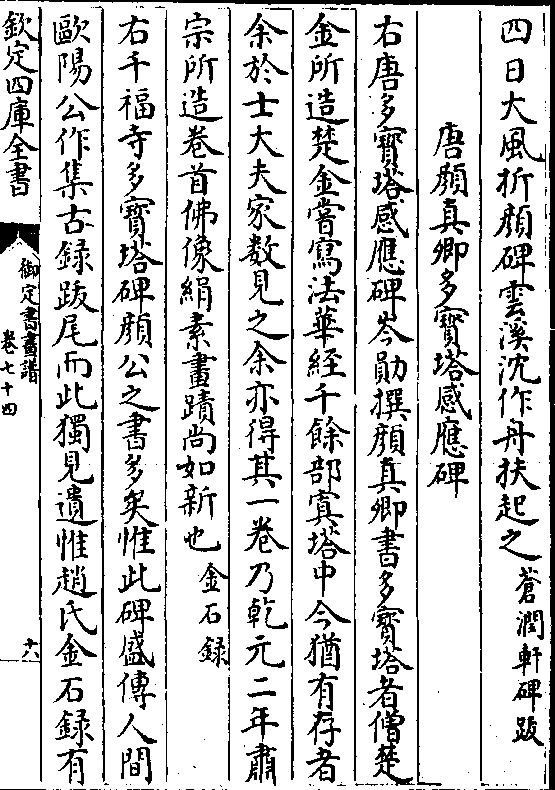 四日大風折顔碑雲溪沈作舟扶起之蒼潤軒碑跋
唐顔真卿多寶塔感應碑
右唐多寶塔感應碑岑勛撰顔真卿書多寶塔者僧楚
金所造楚金嘗寫法華經千餘部寘塔中今猶有存者
余於士大夫家數見之余亦得其一卷乃乾元二年肅
宗所造卷首佛像絹素畫蹟尚如新也金石録
右千福寺多寶塔碑顔公之書多矣惟此碑盛傳人間
歐陽公作集古録跋尾而此獨見遺惟趙氏金石録有
欽定四庫全書
御定書畫譜
卷七十四
十六